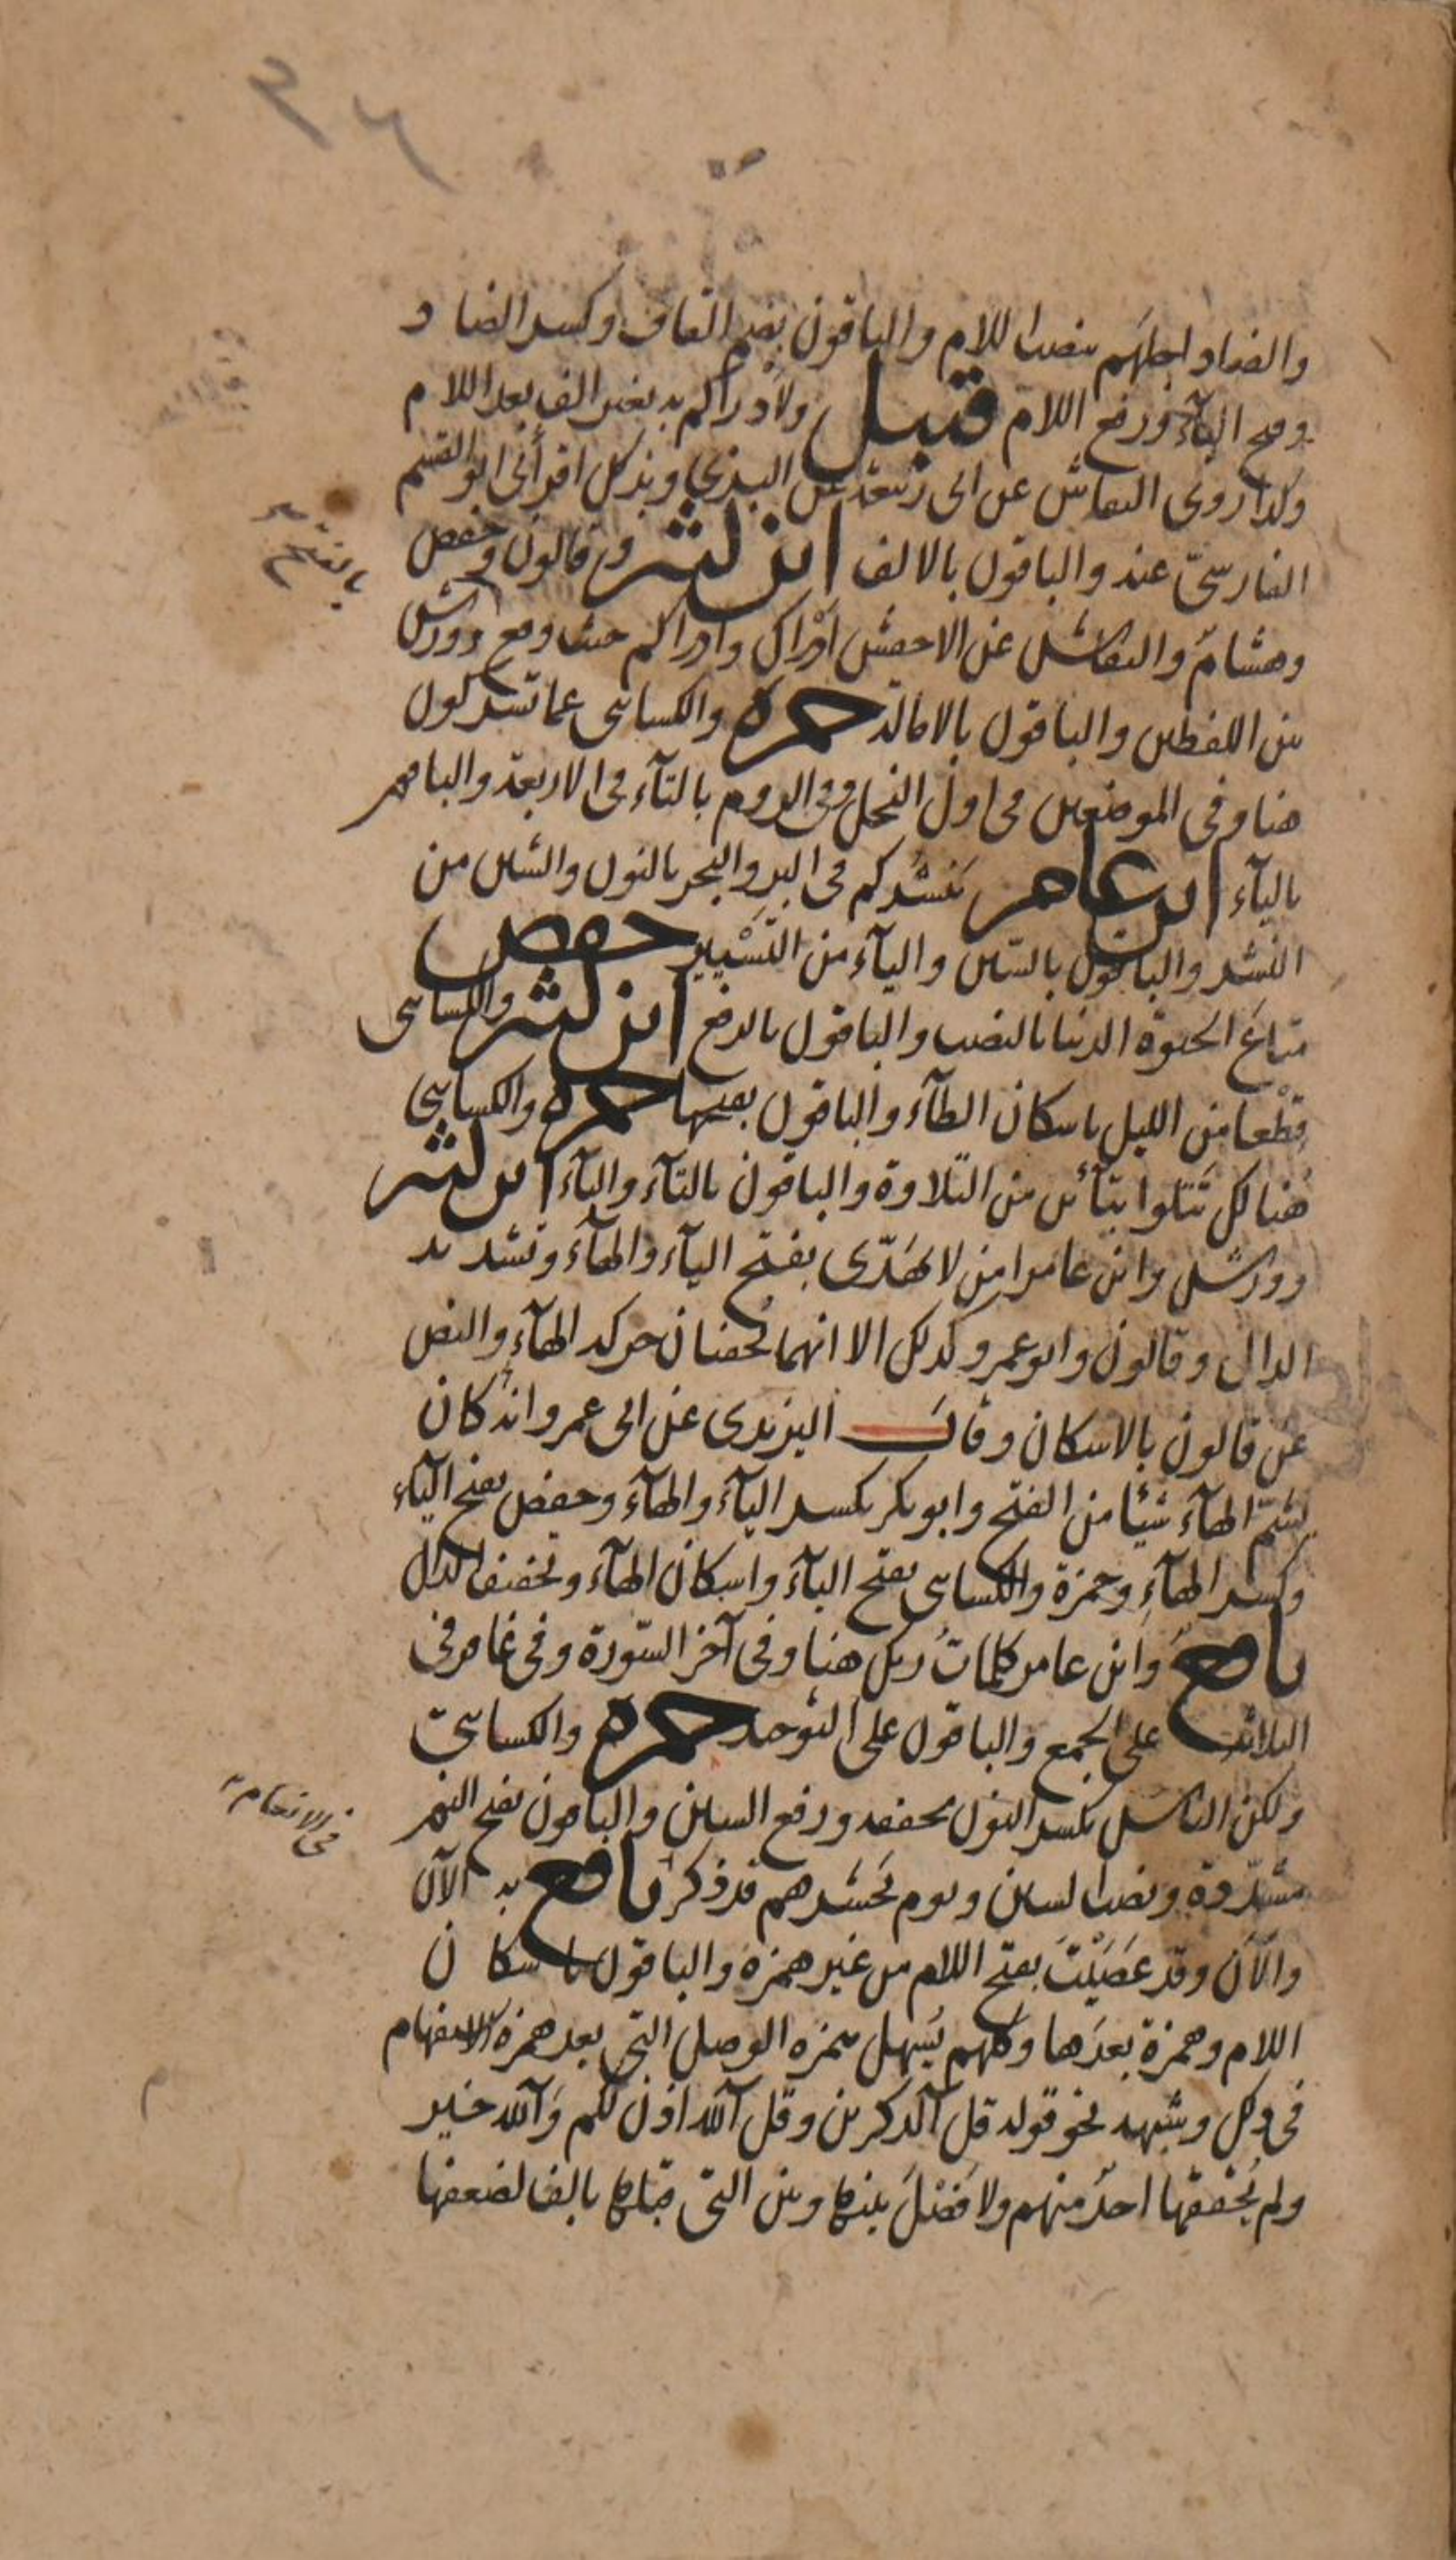 ٣٤
والضاد اجلهم بنصب اللام والباقون بضم القاف وكسر الضاد
وفتح اليآء ورفع اللام قنبل ولأدراكم به بغير الف بعد اللام
وكذا روى النقاش عن ابى ربيعة عن البزى وبذلك اقرأنى ابو القسم
الفارسىّ عنه والباقون بالالف ابن كثير وقالون وحفص
وهشام والنقاش عن الاخفش ادراك وادراكم حيث وقع وورش
بالفتح
بين اللفظين والباقون بالامالة حمزة والكسائى عما تشركون
هنا وفى الموضعين فى اول النحل وفى الروم بالتآء فى الاربعة والباقون
باليآء ابن عامر يَنشُركم فى البر والبحر بالنون والشين من
النشر والباقون بالسّين واليآء من التَّسْيِير حفص
متاعَ الحيوة الدنيا بالنصب والباقون بالرفع ابن كثير والكسائى
قِطْعا من الليل باسكان الطآء والباقون بفتحها حمزة والكسائى
هُنالك تَتلوا بتآئين من التلاوة والباقون بالتآء والبآء ابن كثير
وورش وابن عامر امن لا يَهَدّى بفتح اليآء والهآء وتشديد
الدال وقالون وابو عمرو كذلك الا انهما يُخفيان حركة الهآء والنص
عن قالون بالاسكان وقال اليزيدى عن ابى عمرو انه كان
يُشِمّ الهآء شيئا من الفتح وابو بكر بكسر اليآء والهآء وحفص بفتح اليآء
وكسر الهآء وحمزة والكسائى بفتح اليآء واسكان الهآء وتخفيف الدال
نافع وابن عامر كلماتُ ربك هنا وفى آخر السّورة وفى غافر فى
الثلاثة على الجمع والباقون على التوحيد حمزة والكسائىّ
فى الانعام
ولكن الناس بكسر النون مخففة ورفع السين والباقون بفتح النون
مشدّدة ونصب السين ويوم نَحشرهم قد ذكر نافع به الآن
والآن وقد عَصَيْتَ بفتح اللام من غير همزه والباقون باسكان
اللام وهمزة بعدَها وكلهم يُسَهل همزه الوصل التى بعد همزة الاستفهام
فى ذلك وشِبهه نحو قوله قل آلذكرين وقل آلله اذن لكم وَآلله خير
ولم يُحققها احدٌ منهم ولا فَصْلَ بينها وبين التى قبلها بالف لضعفها